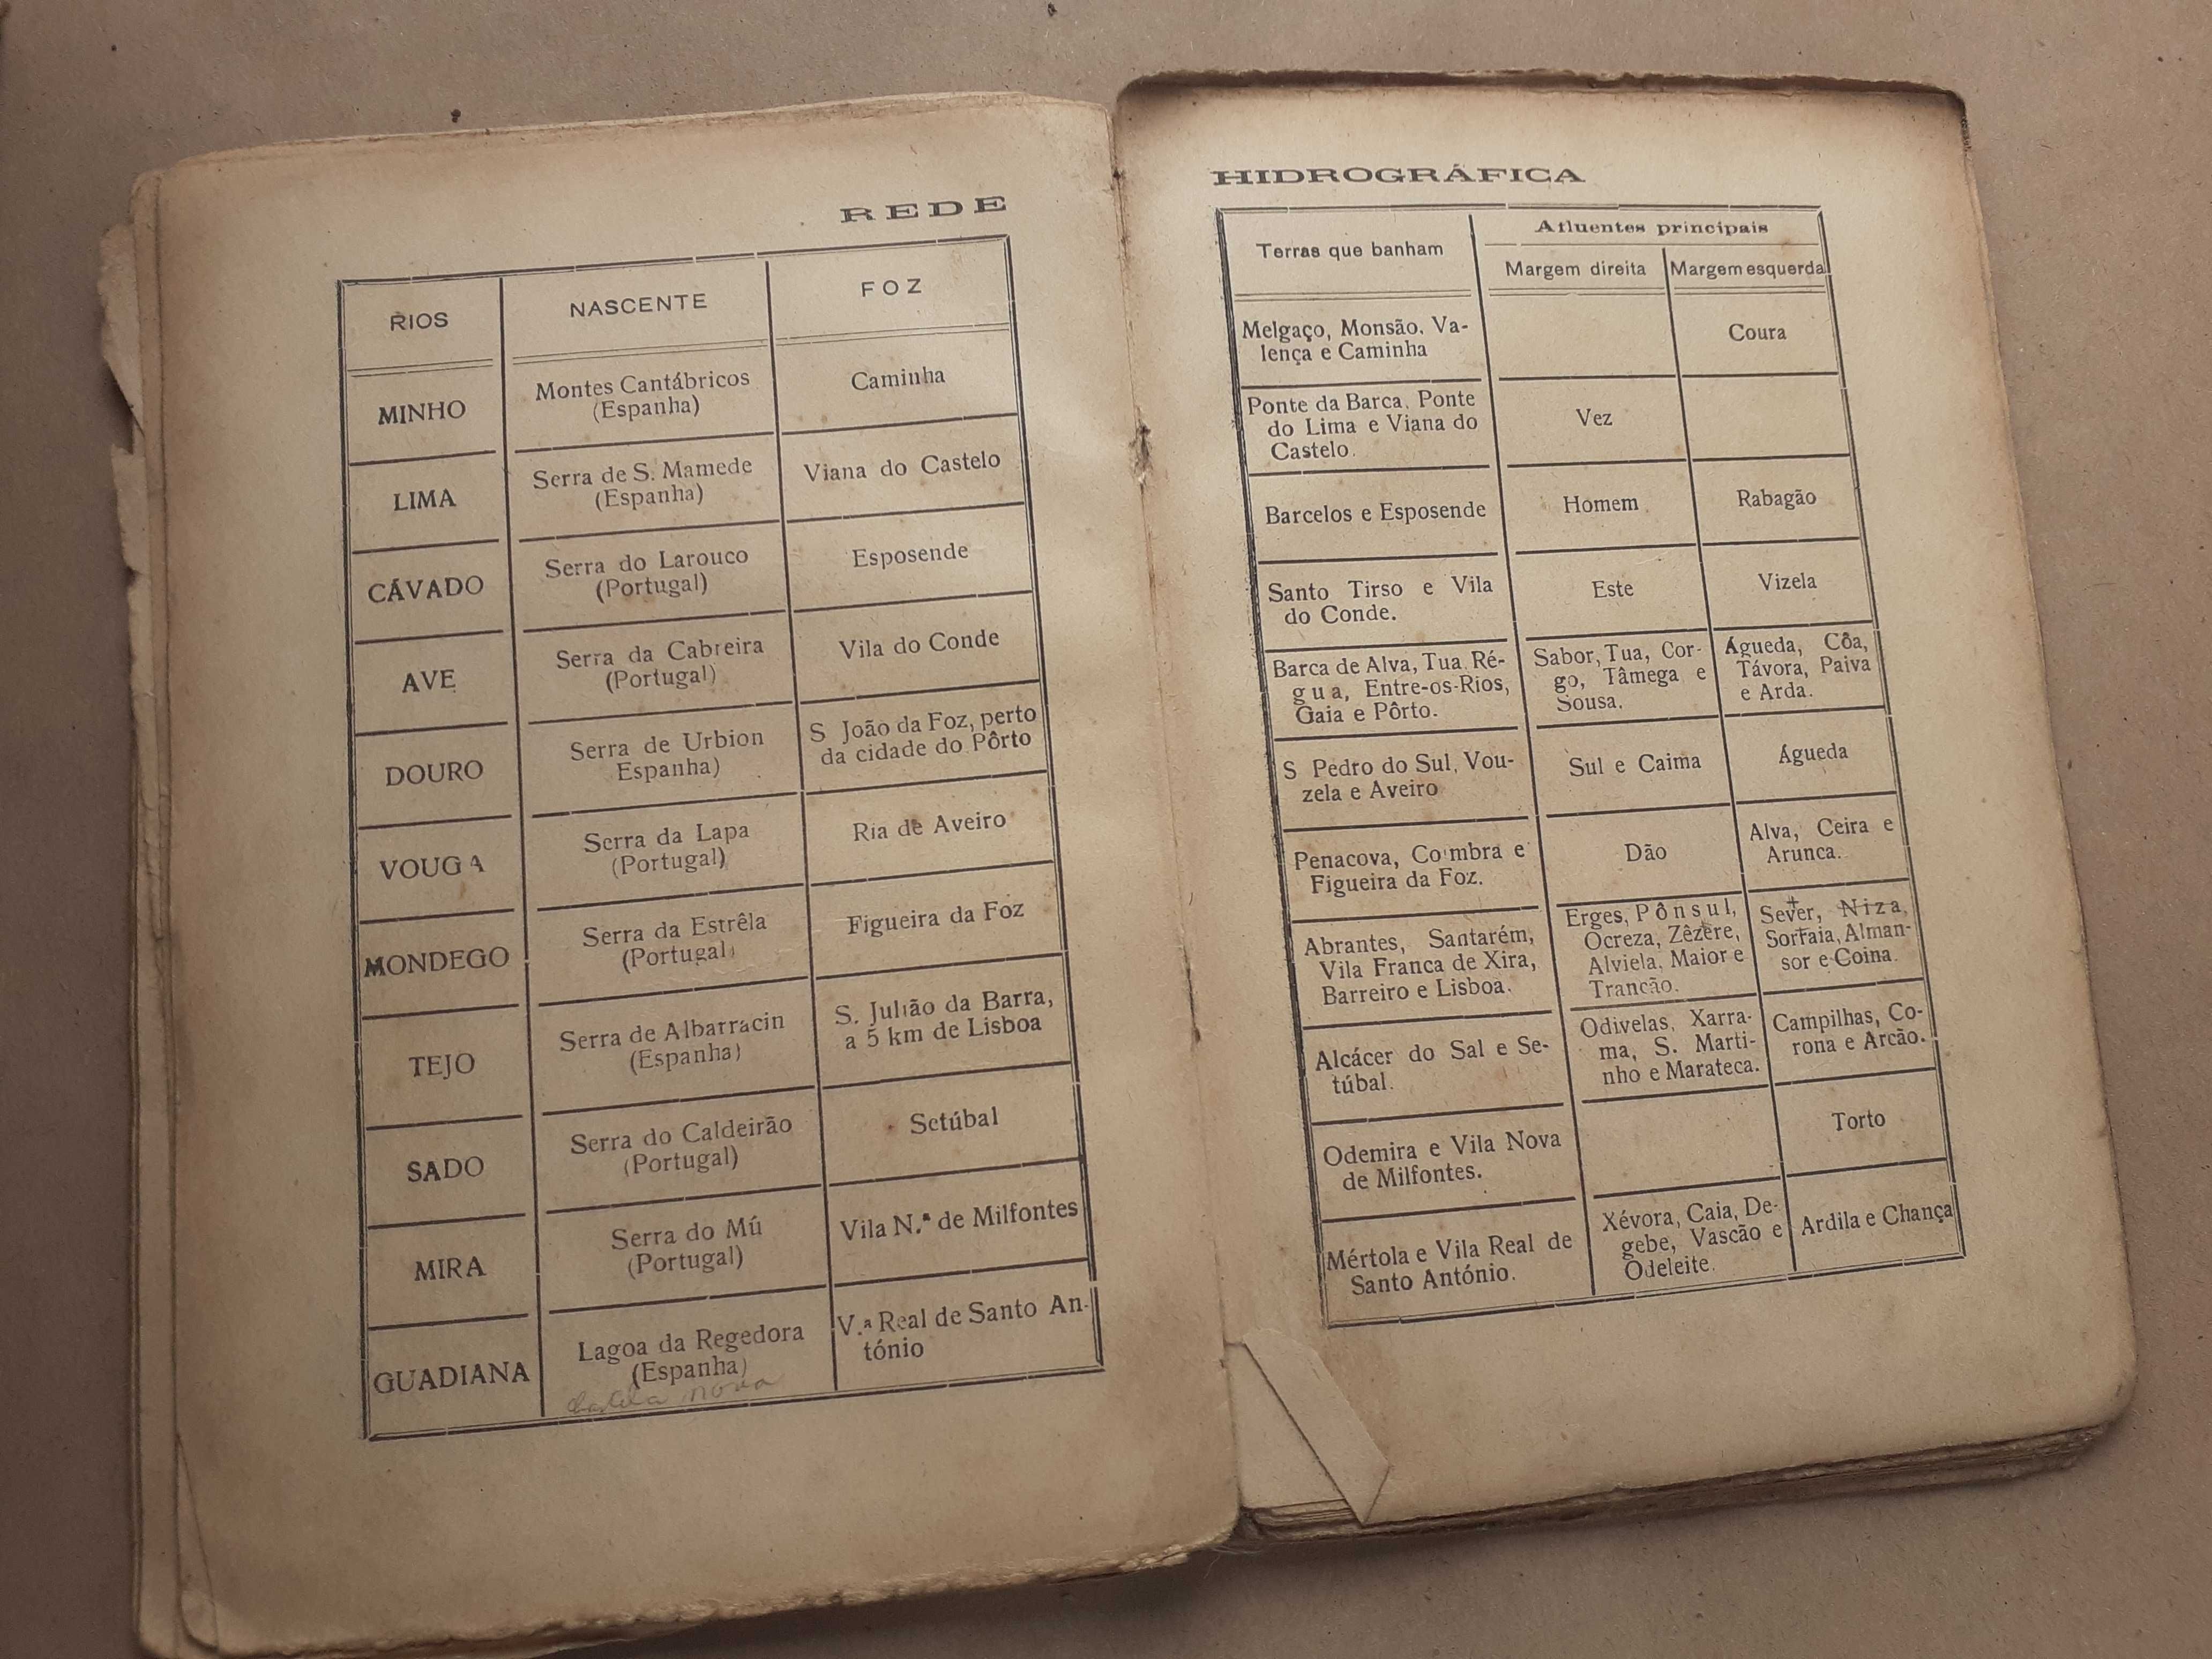 REDE
RIOS
NASCENTE
FOZ
MINHO
Montes Cantábricos
(Espanha)
Caminha
LIMA
Serra de S. Mamede
(Espanha)
Viana do Castelo
CÁVADO
Serra do Larouco
(Portugal)
Esposende
AVE
Serra da Cabreira
(Portugal)
Vila do Conde
DOURO
Serra de Urbion
Espanha)
S João da Foz, perto
da cidade do Pôrto
VOUGA
Serra da Lapa
(Portugal)
Ria de Aveiro
MONDEGO
Serra da Estrêla
(Portugal)
Figueira da Foz
TEJO
Serra de Albarracin
(Espanha)
S. Julião da Barra,
a 5 km de Lisboa
SADO
Serra do Caldeirão
(Portugal)
Setúbal
MIRA
Serra do Mú
(Portugal)
Vila N.ª de Milfontes
GUADIANA
Lagoa da Regedora
(Espanha)
Castela nova
V.ª Real de Santo An-
tónio
HIDROGRÁFICA
Terras que banham
Afluentes principais
Margem direita
Margem esquerda
Melgaço, Monsão, Va-
lença e Caminha
Coura
Ponte da Barca, Ponte
do Lima e Viana do
Castelo.
Vez
Barcelos e Esposende
Homem
Rabagão
Santo Tirso e Vila
do Conde.
Este
Vizela
Barca de Alva, Tua, Ré-
gua, Entre-os-Rios,
Gaia e Pôrto.
Sabor, Tua, Cor-
go, Tâmega e
Sousa.
Águeda, Côa,
Távora, Paiva
e Arda.
S Pedro do Sul, Vou-
zela e Aveiro
Sul e Caima
Águeda
Penacova, Coimbra e
Figueira da Foz.
Dão
Alva, Ceira e
Arunca.
Abrantes, Santarém,
Vila Franca de Xira,
Barreiro e Lisboa.
Erges, Pônsul,
Ocreza, Zêzere,
Alviela, Maior e
Trancão.
Sever, Niza,
Sorraia, Alman-
sor e Coina.
Alcácer do Sal e Se-
túbal.
Odivelas, Xarra-
ma, S. Marti-
nho e Marateca.
Campilhas, Co-
rona e Arcão.
Odemira e Vila Nova
de Milfontes.
Torto
Mértola e Vila Real de
Santo António.
Xévora, Caia, De-
gebe, Vascão e
Odeleite.
Ardila e Chança